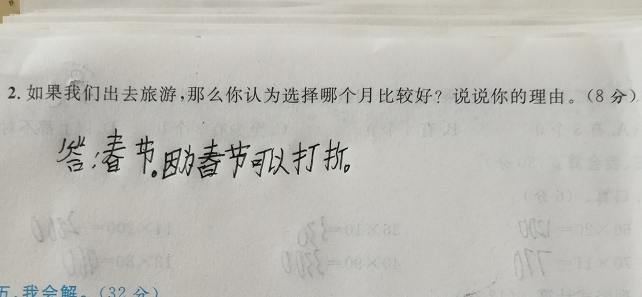 2. 如果我们出去旅游,那么你认为选择哪个月比较好? 说说你的理由。(8分)
答:春节。因为春节可以打折。
五、我会解。(32分)